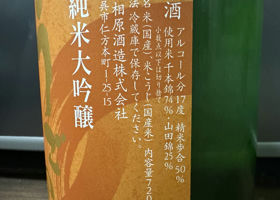 酒
アルコール分17度 精米歩合50%
使用米千本錦74%・山田錦25%
小数点以下は切り捨て
名 米(国産)、米こうじ(国産米) 内容量720
法 冷蔵庫で保存してください。
相原酒造株式会社
呉市仁方本町1-25-15
純米大吟醸